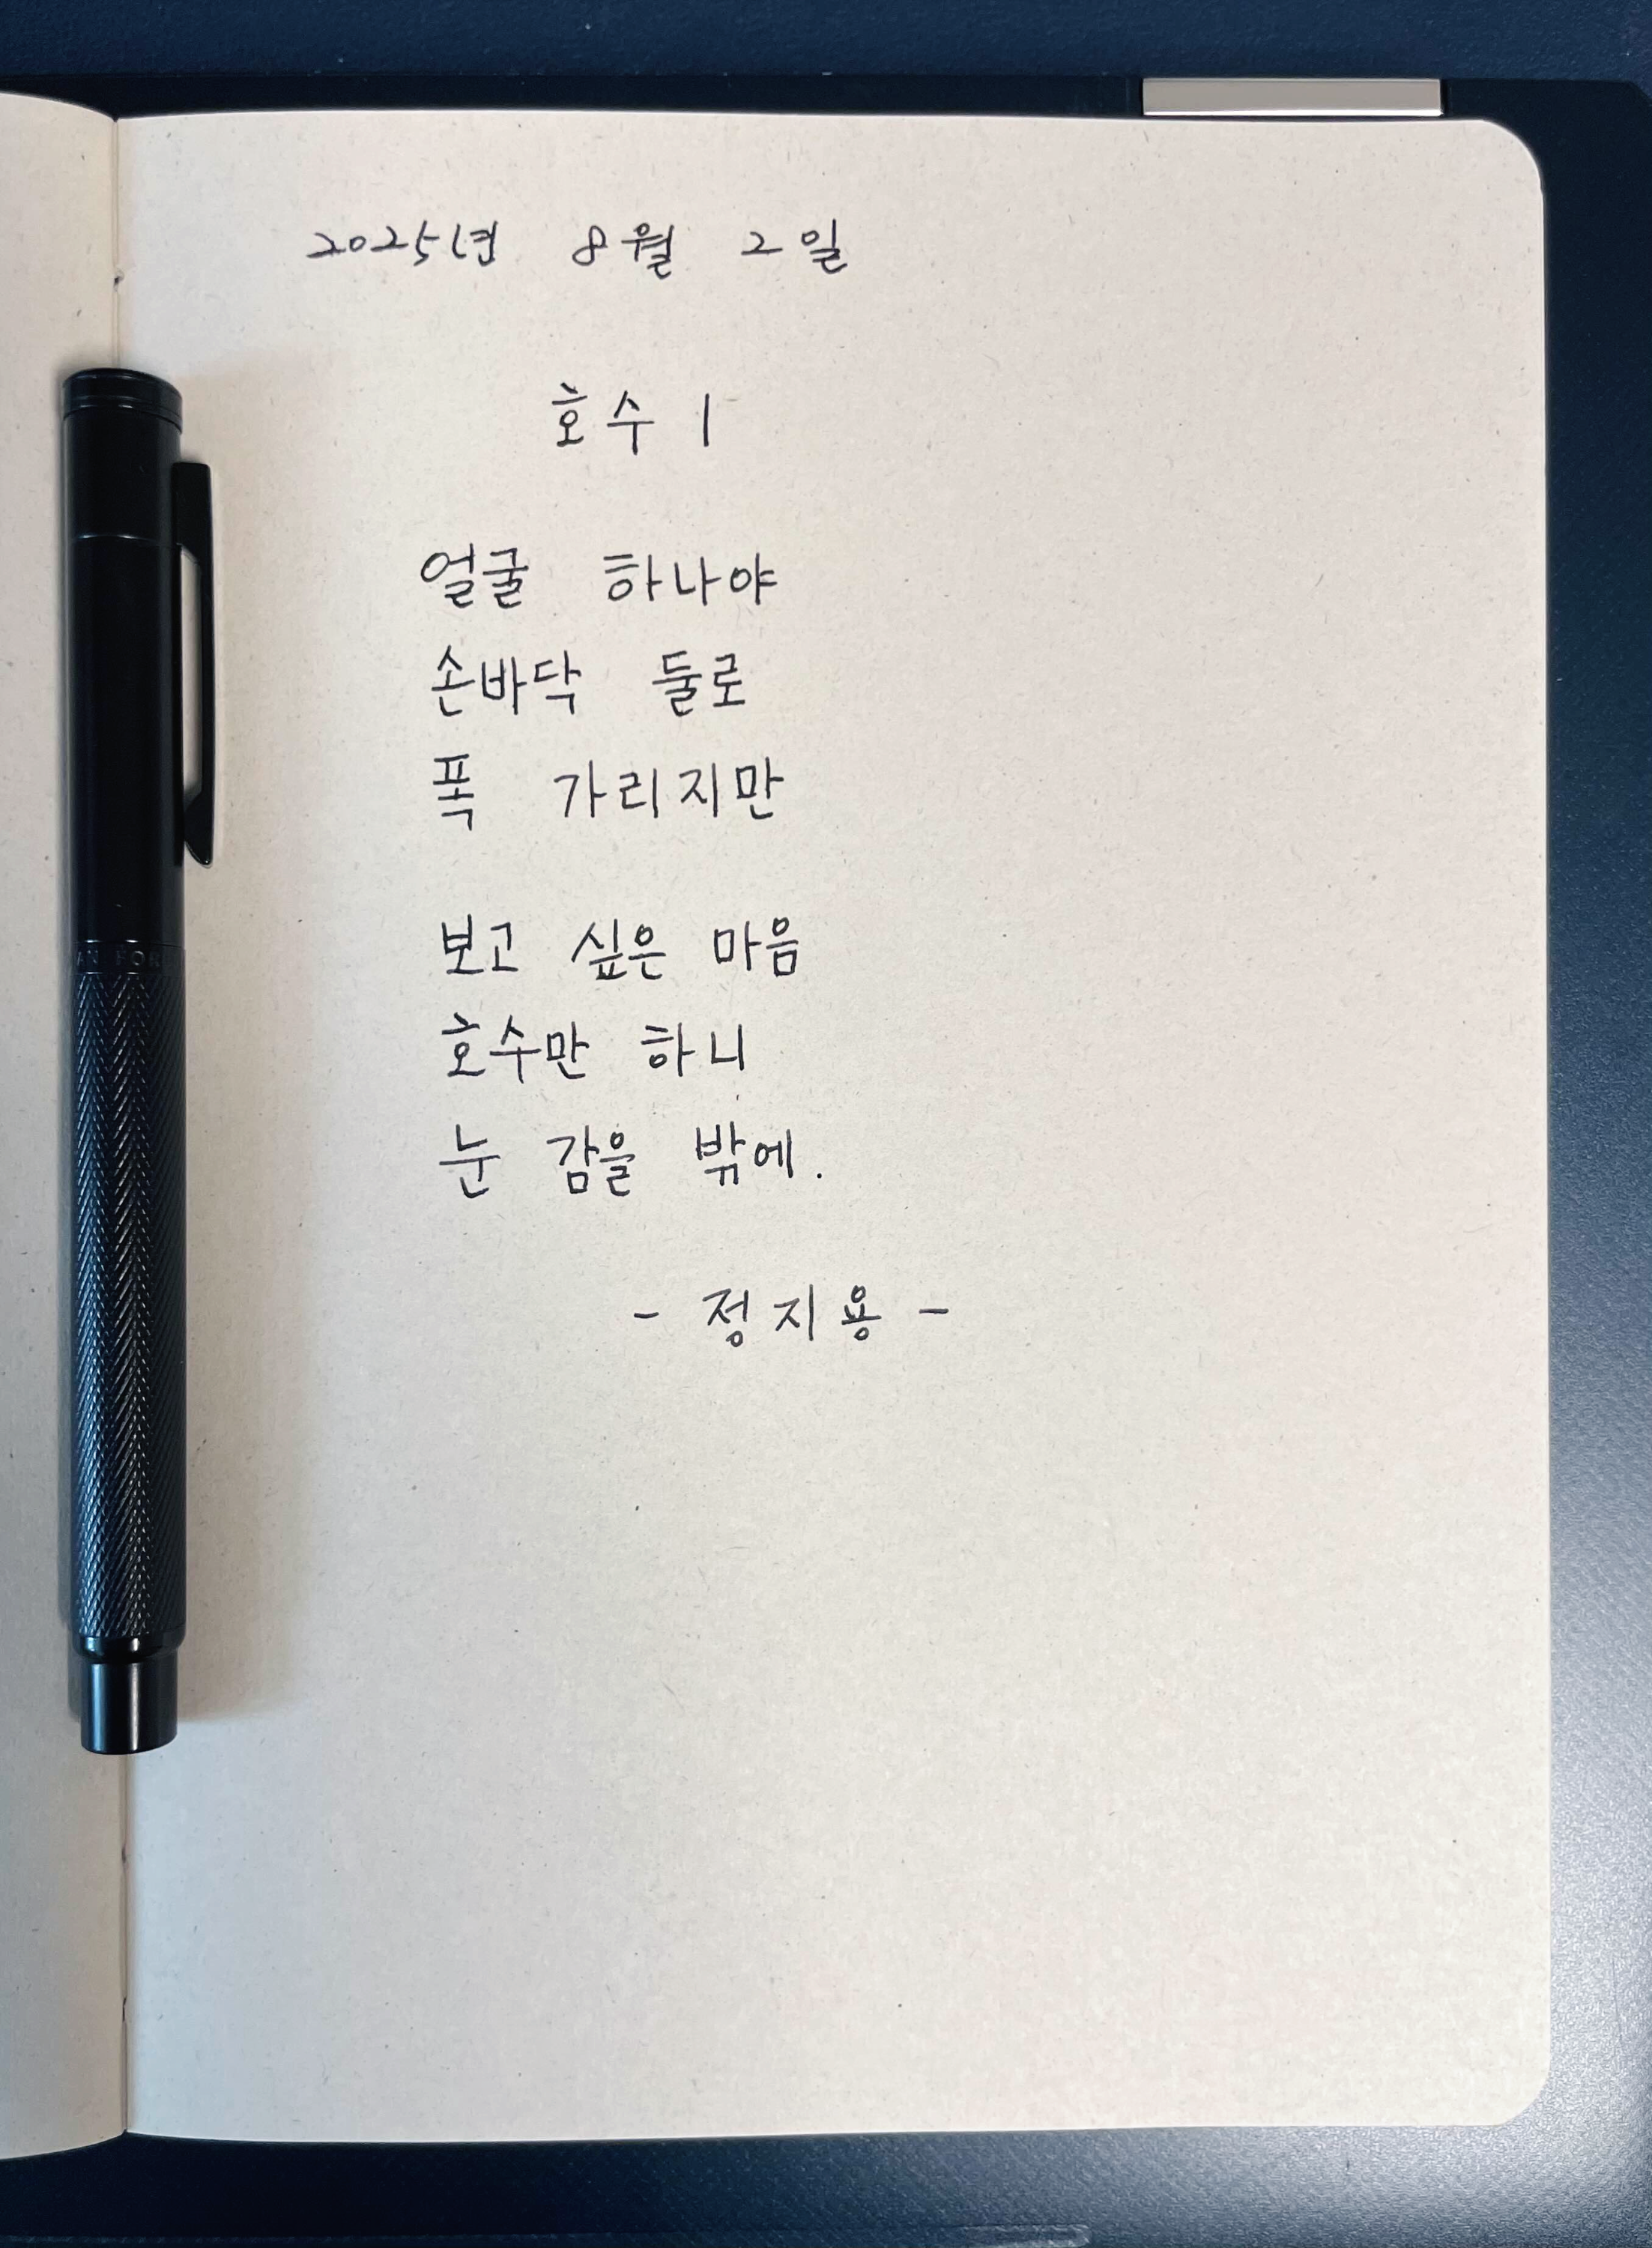 2025년 8월 2일
호수 1
얼굴 하나야
손바닥 둘로
폭 가리지만
보고 싶은 마음
호수만 하니
눈 감을 밖에.
- 정지용 -